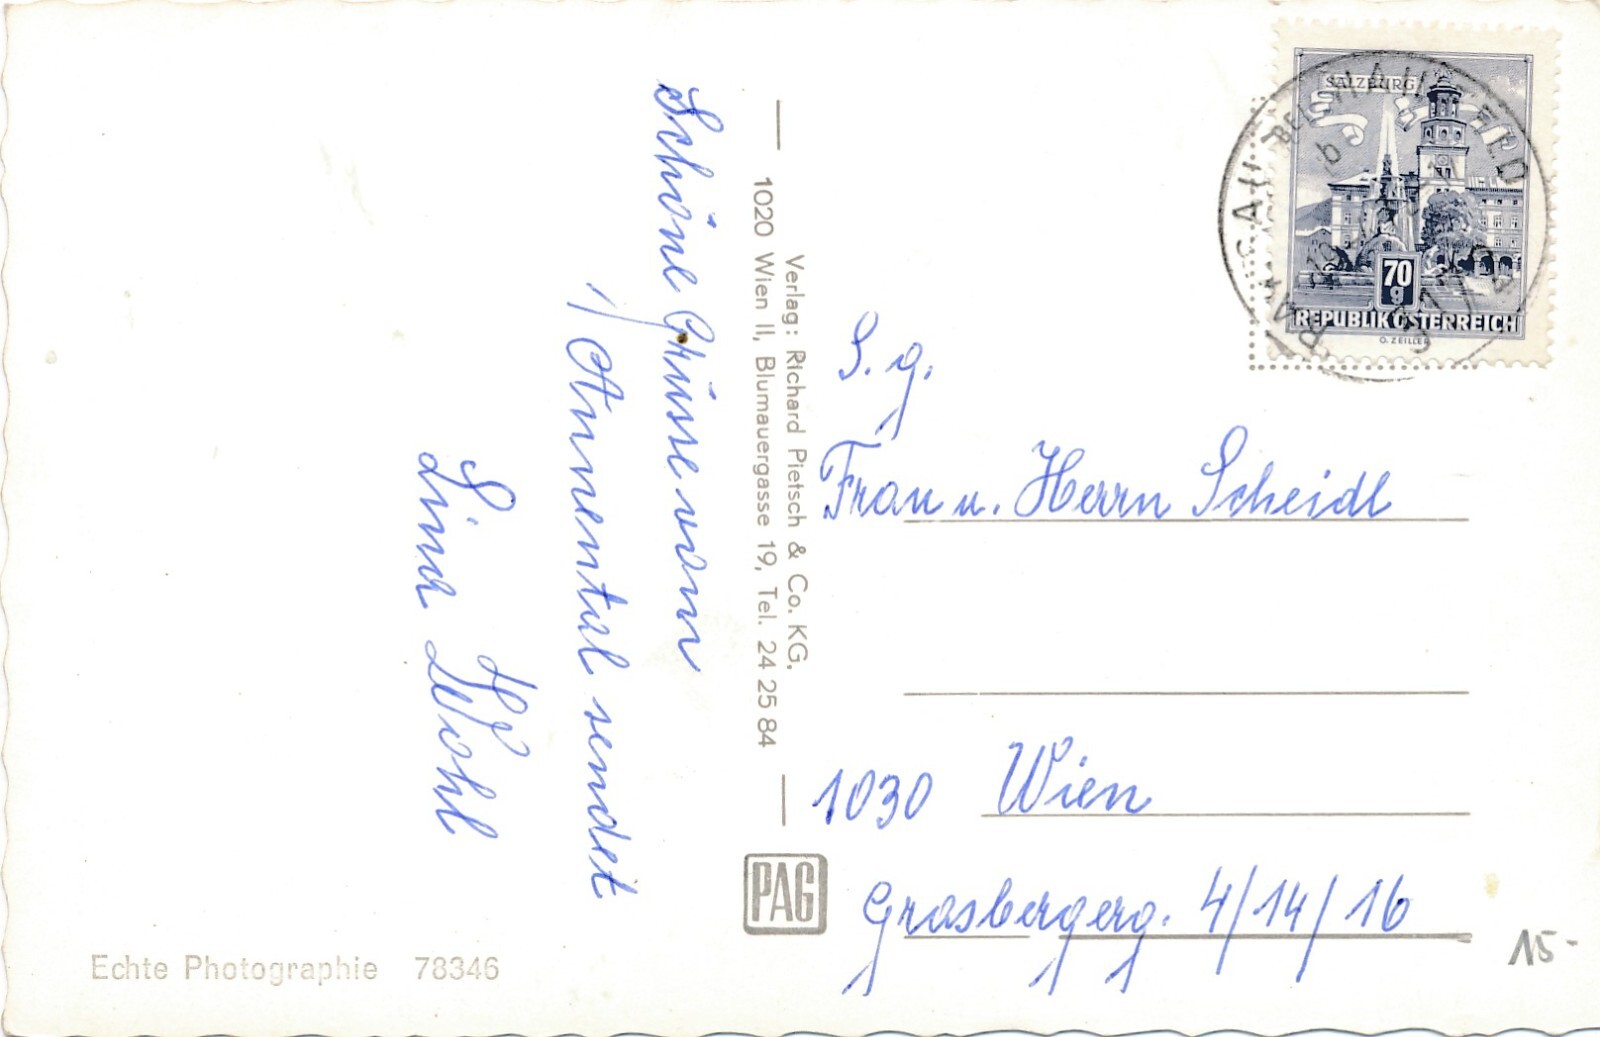 Schöne Grüsse vom
Annental sendet
Lina Wohl
Echte Photographie 78346
Verlag: Richard Pietsch & Co. KG,
1020 Wien II, Blumauergasse 19, Tel. 24 25 84
PAG
SALZBURG
70
g
REPUBLIK ÖSTERREICH
O. ZEILLER
S. g.
Frau u. Herrn Scheidl
1030 Wien
Grasbergerg. 4/14/16
15-